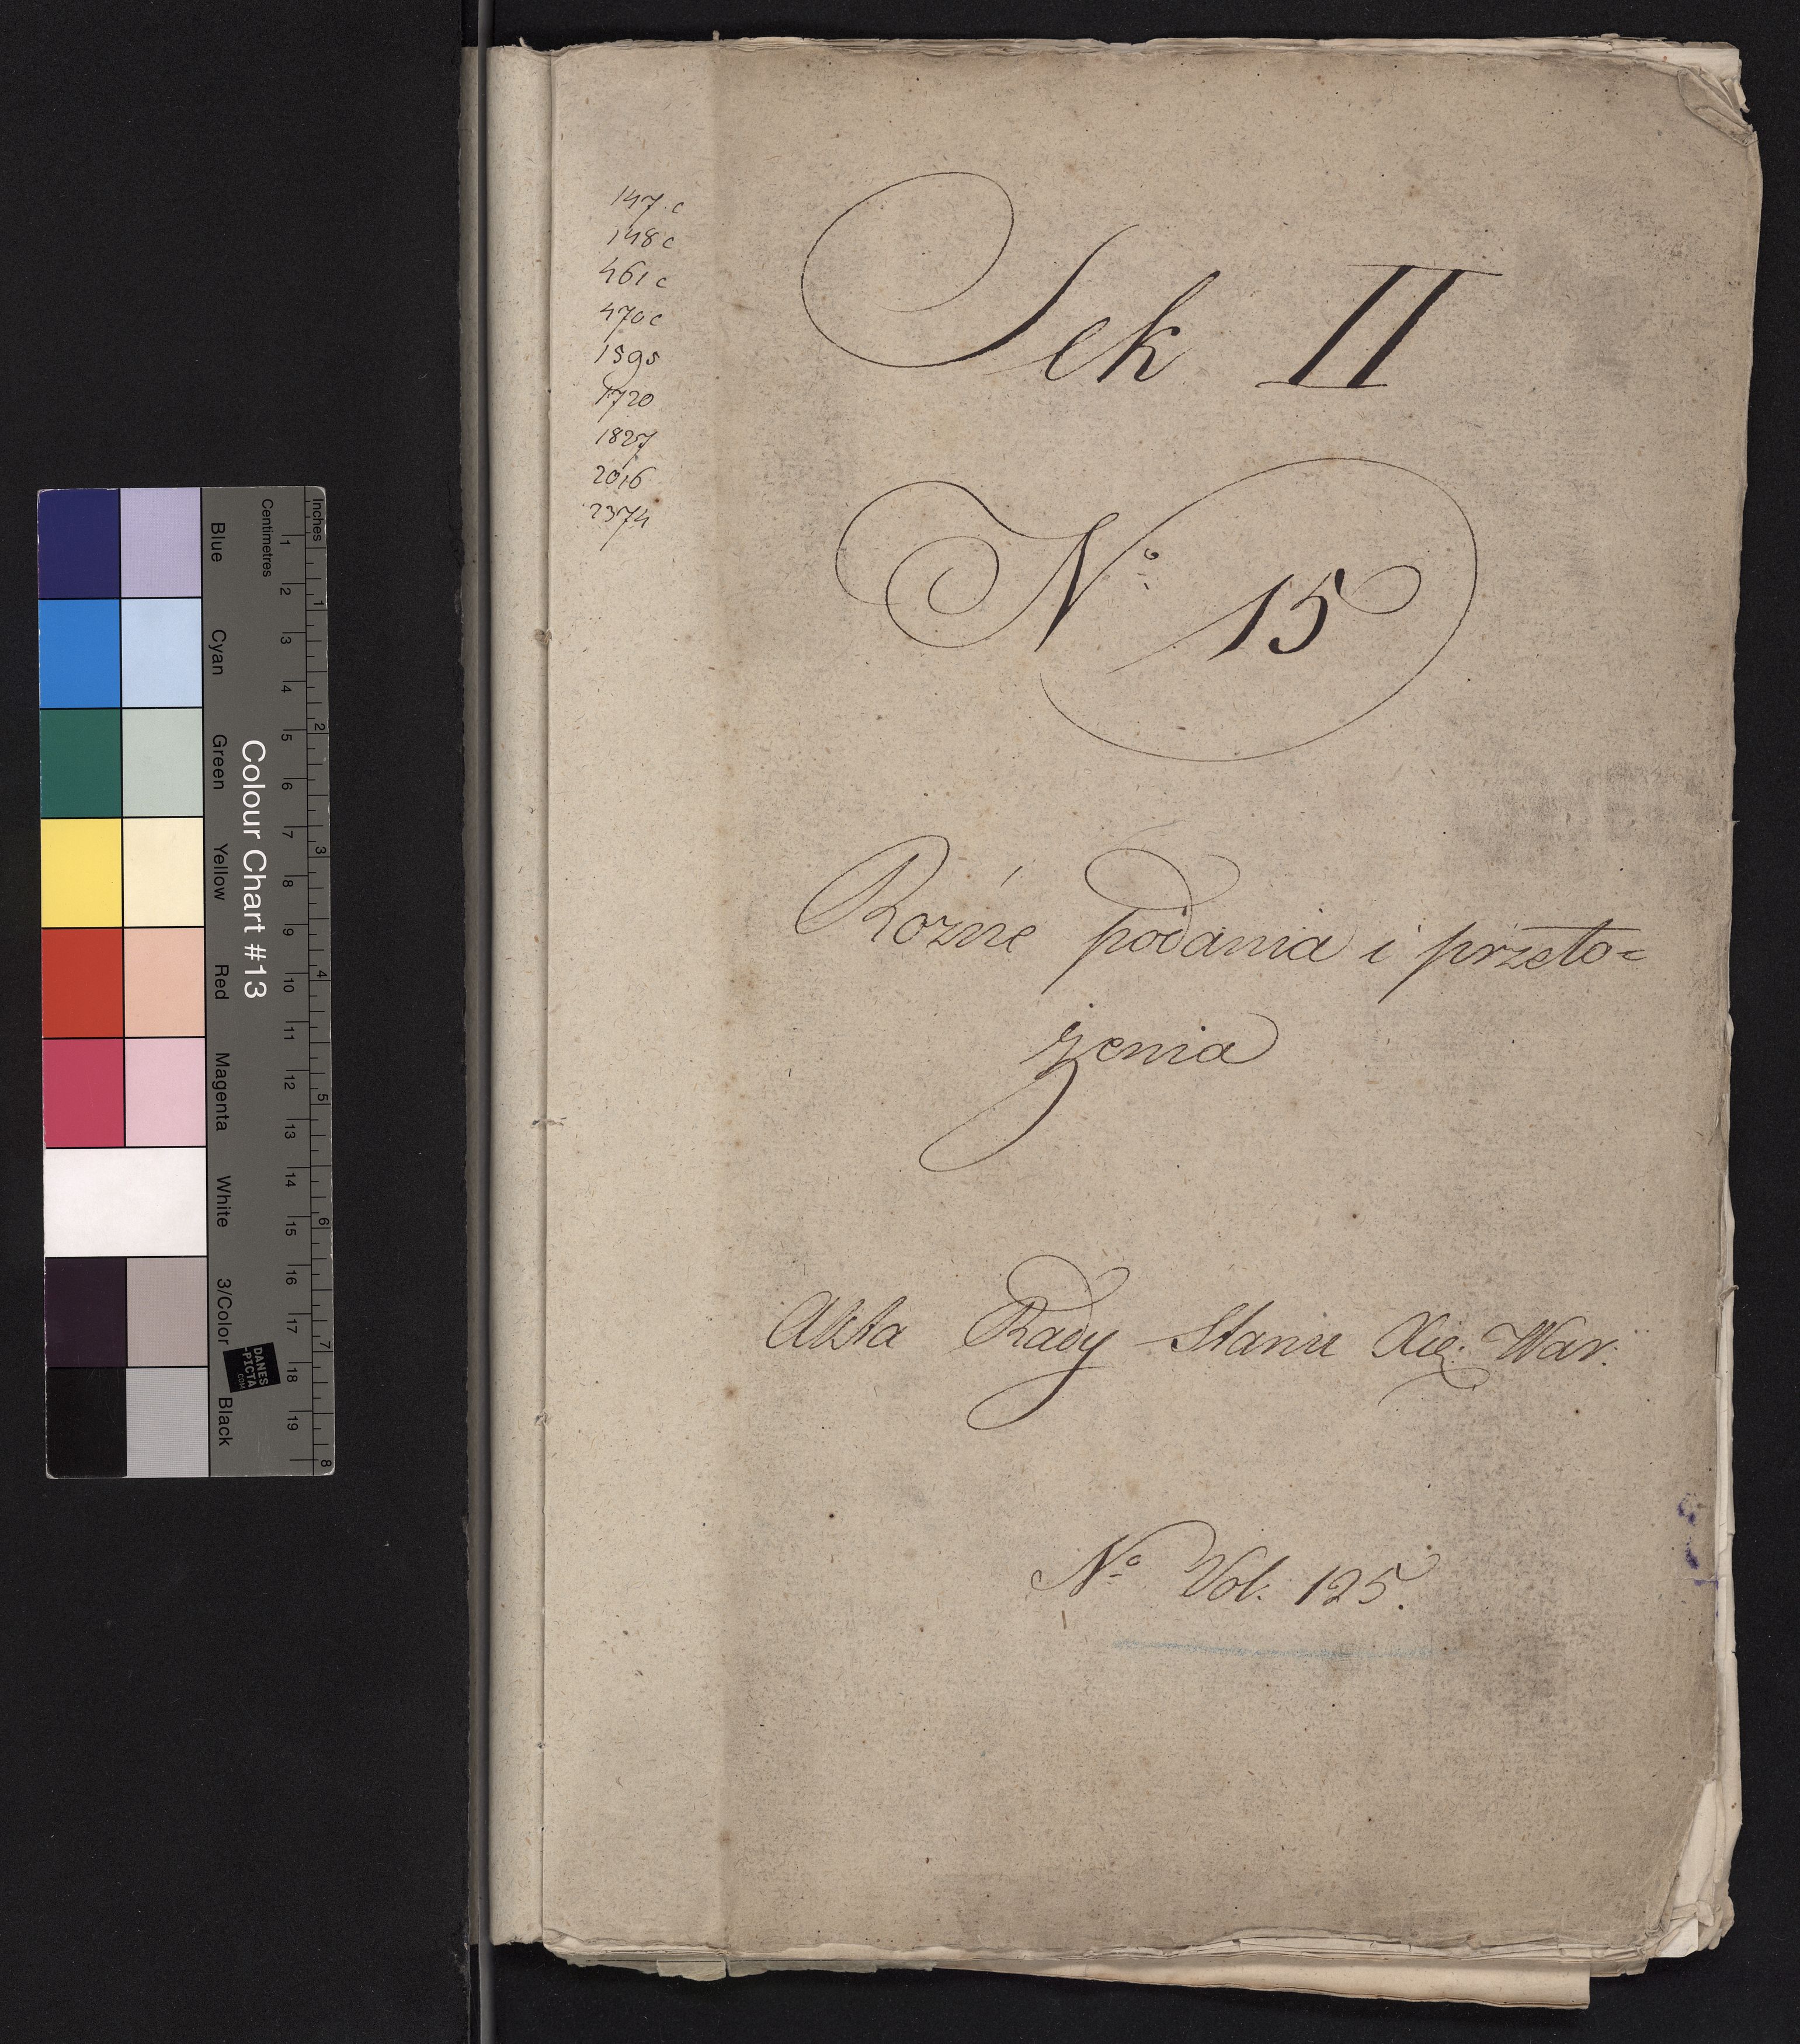 147 c
148 c
461 c
470 c
1595
1720
1827
2016
2374
Sek II
No 15
Rozne podania i przeło=
żenia
Akta Rady Stanu Xię: War:
No Vol: 125.
Inches
Centimetres
1 2 3 4 5 6 7 8 9 10 11 12 13 14 15 16 17 18 19
1 2 3 4 5 6 7 8
Colour Chart #13
Blue Cyan Green Yellow Red Magenta White 3/Color Black
DANES
-PICTA
.COM